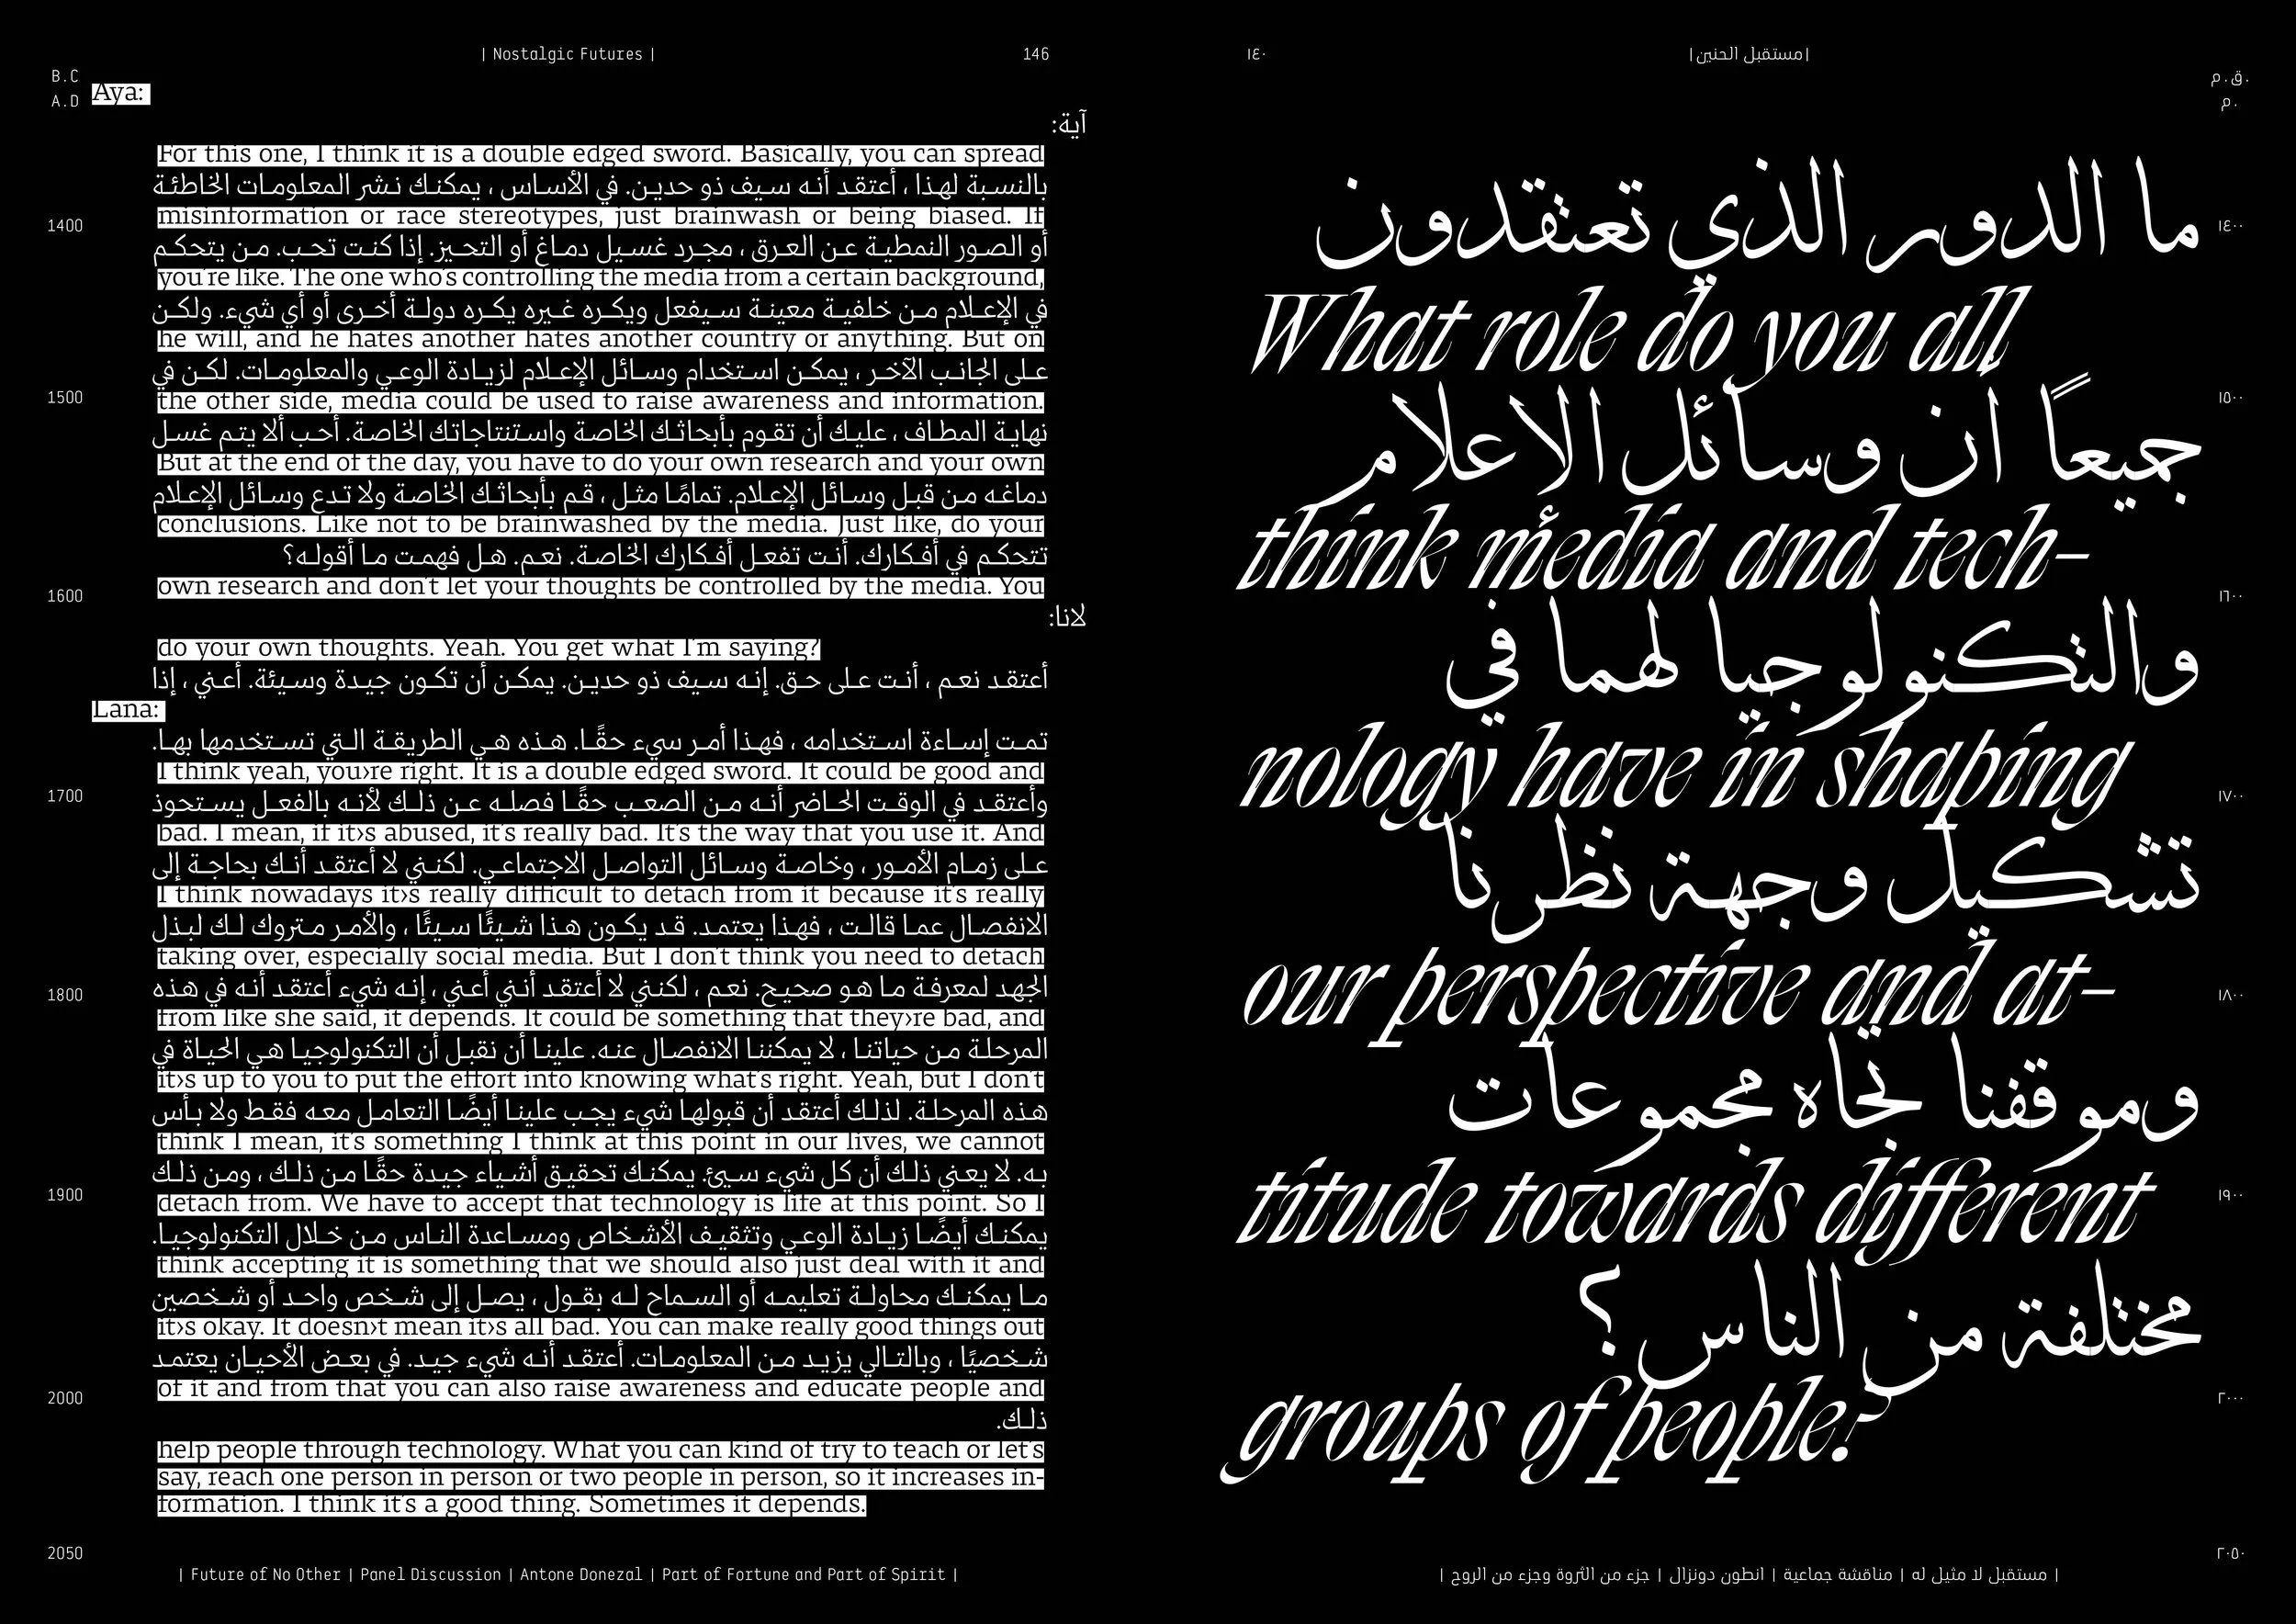 | Nostalgic Futures |
146
B.C
A.D
Aya:
آية:
For this one, I think it is a double edged sword. Basically, you can spread
بالنسبة لهذا ، أعتقد أنه سيف ذو حدين. في الأساس ، يمكنك نشر المعلومات الخاطئة
misinformation or race stereotypes, just brainwash or being biased. If
أو الصور النمطية عن العرق ، مجرد غسيل دماغ أو التحيز. إذا كنت تحب. من يتحكم
you're like. The one who's controlling the media from a certain background,
في الإعلام من خلفية معينة سيفعل ويكره غيره يكره دولة أخرى أو أي شيء. ولكن
he will, and he hates another hates another country or anything. But on
على الجانب الآخر ، يمكن استخدام وسائل الإعلام لزيادة الوعي والمعلومات. لكن في
the other side, media could be used to raise awareness and information.
نهاية المطاف ، عليك أن تقوم بأبحاثك الخاصة واستنتاجاتك الخاصة. أحب ألا يتم غسل
But at the end of the day, you have to do your own research and your own
دماغه من قبل وسائل الإعلام. تمامًا مثل ، قم بأبحاثك الخاصة ولا تدع وسائل الإعلام
conclusions. Like not to be brainwashed by the media. Just like, do your
تتحكم في أفكارك. أنت تفعل أفكارك الخاصة. نعم. هل فهمت ما أقوله؟
own research and don't let your thoughts be controlled by the media. You
لانا:
do your own thoughts. Yeah. You get what I'm saying?
أعتقد نعم ، أنت على حق. إنه سيف ذو حدين. يمكن أن تكون جيدة وسيئة. أعني ، إذا
Lana:
تمت إساءة استخدامه ، فهذا أمر سيء حقًا. هذه هي الطريقة التي تستخدمها بها.
I think yeah, you›re right. It is a double edged sword. It could be good and
وأعتقد في الوقت الحاضر أنه من الصعب حقًا فصله عن ذلك لأنه بالفعل يستحوذ
bad. I mean, if it›s abused, it's really bad. It's the way that you use it. And
على زمام الأمور ، وخاصة وسائل التواصل الاجتماعي. لكنني لا أعتقد أنك بحاجة إلى
I think nowadays it›s really difficult to detach from it because it's really
الانفصال عما قالت ، فهذا يعتمد. قد يكون هذا شيئًا سيئًا ، والأمر متروك لك لبذل
taking over, especially social media. But I don't think you need to detach
الجهد لمعرفة ما هو صحيح. نعم ، لكنني لا أعتقد أنني أعني ، إنه شيء أعتقد أنه في هذه
from like she said, it depends. It could be something that they›re bad, and
المرحلة من حياتنا ، لا يمكننا الانفصال عنه. علينا أن نقبل أن التكنولوجيا هي الحياة في
it›s up to you to put the effort into knowing what's right. Yeah, but I don't
هذه المرحلة. لذلك أعتقد أن قبولها شيء يجب علينا أيضًا التعامل معه فقط ولا بأس
think I mean, it's something I think at this point in our lives, we cannot
به. لا يعني ذلك أن كل شيء سيئ. يمكنك تحقيق أشياء جيدة حقًا من ذلك ، ومن ذلك
detach from. We have to accept that technology is life at this point. So I
يمكنك أيضًا زيادة الوعي وتثقيف الأشخاص ومساعدة الناس من خلال التكنولوجيا.
think accepting it is something that we should also just deal with it and
ما يمكنك محاولة تعليمه أو السماح له بقول ، يصل إلى شخص واحد أو شخصين
it›s okay. It doesn›t mean it›s all bad. You can make really good things out
شخصيًا ، وبالتالي يزيد من المعلومات. أعتقد أنه شيء جيد. في بعض الأحيان يعتمد
of it and from that you can also raise awareness and educate people and
ذلك.
help people through technology. What you can kind of try to teach or let's
say, reach one person in person or two people in person, so it increases in-
formation. I think it's a good thing. Sometimes it depends.
1400
1500
1600
1700
1800
1900
2000
2050
| Future of No Other | Panel Discussion | Antone Donezal | Part of Fortune and Part of Spirit |
١٤٠
|مستقبل الحنين|
ق.م.
م.
ما الدور الذي تعتقدون
What role do you all
جميعاً أن وسائل الاعلام
think media and tech-
والتكنولوجيا لهما في
nology have in shaping
تشكيل وجهة نظرنا
our perspective and at-
وموقفنا تجاه مجموعات
titude towards different
مختلفة من الناس؟
groups of people?
١٤٠٠
١٥٠٠
١٦٠٠
١٧٠٠
١٨٠٠
١٩٠٠
٢٠٠٠
٢٠٥٠
| مستقبل لا مثيل له | مناقشة جماعية | انطون دونزال | جزء من الثروة وجزء من الروح |